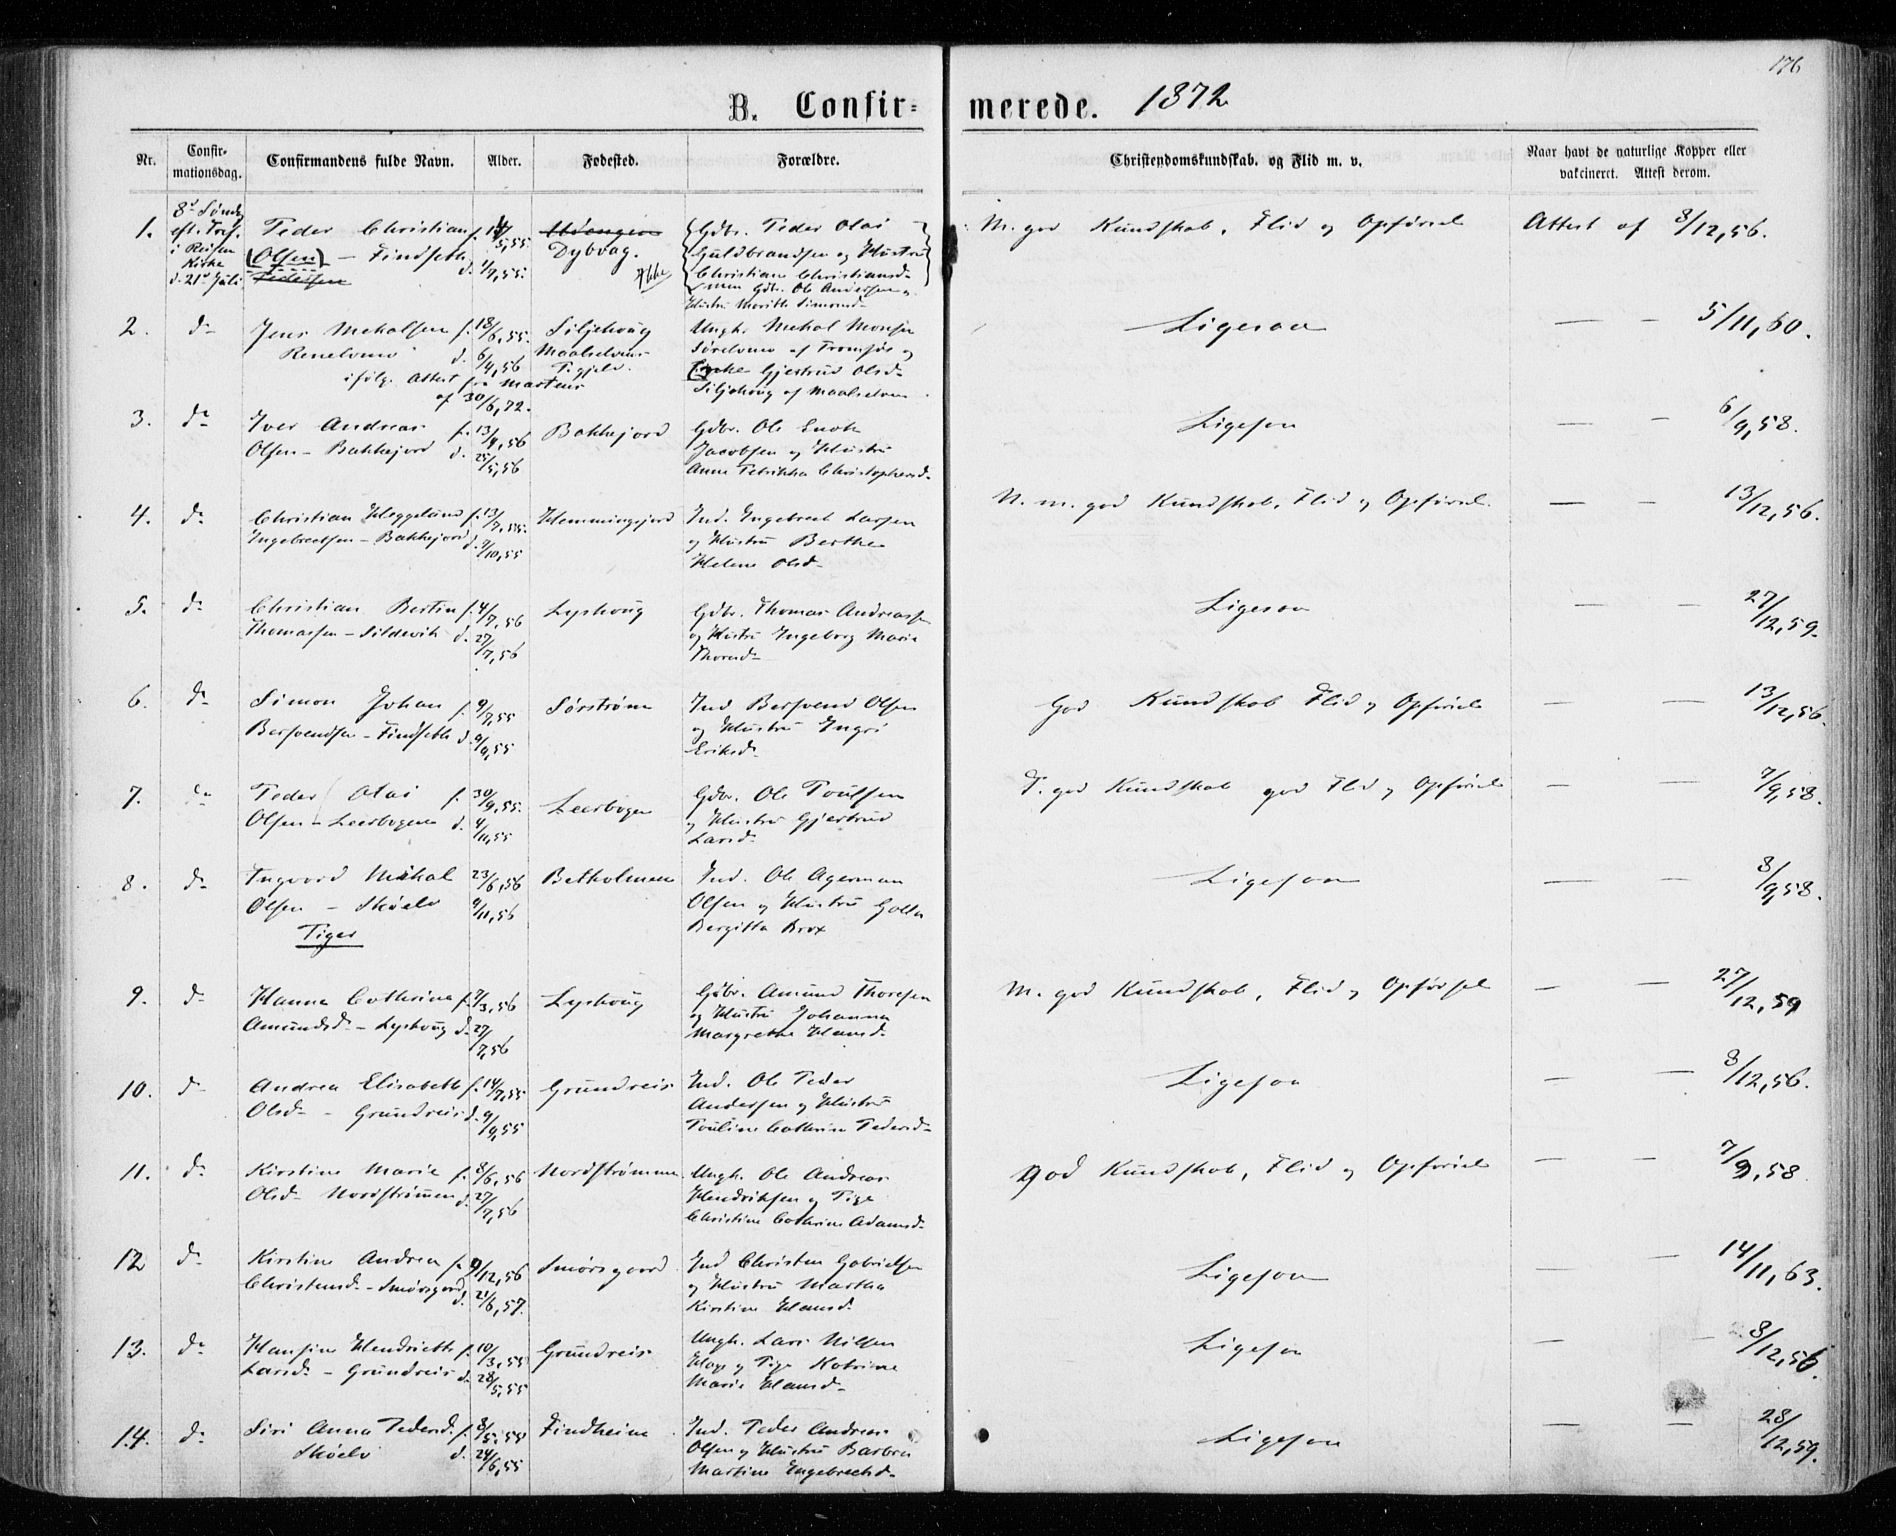 176
B. Confir= merede. 1872
Nr.
Confir-
mationsdag.
Confirmandens fulde Navn.
Alder.
Fødested.
Forældre.
Christendomskundskab. og Flid m. v.
Naar havt de naturlige Kopper eller
vakcineret. Attest derom.
1.
8d Sønd.
eft. Tref.
i Reisen
Kirke
d. 21d Juli
Peder Christian f.
(Olsen) – Findseth d.
Pedersen
5,55.
1/7,55.
Dybvag.
Gdbr. Peder Olai
Guldbrandsen og Hustru
Christiane Christiansd.
Gdb. Ole Andersen og
Hustru Marith Simonsd.
M. god Kundskab, Flid og Opførsel
Attest af 8/12,56.
2.
do
Jens Mekalsen f.
Renelvmo d.
ifølg. Attest fra
af 30/6,72.
18/6,55.
6/4,56
Siljehoug
Maalselvens
Pgjeld.
Ungk. Mekal Monsen
Sørelvmo af Tromsøs og
Enke Gjertrud Olsd.
Siljehoug af Maalselven
Ligesaa
— — 5/11,60.
3.
do
Iver Andreas f.
Olsen – Bakkejord d.
13/4,56
25/5,56
Bakkejord
Gdbr. Ole Enok
Jacobsen og Hustru
Anne Petrikka Christophersd.
Ligesaa
— — 6/9,58.
4.
do
Christian Heggelund f.
Ingebretsen – Bakkejord d.
13/7,55.
7/10,55
Hemmingsjord
Ind. Ingebret Larsen
og Hustru Berthe
Helene Olsd.
N. m. god Kundskab, Flid og Opførsel.
— — 13/12,56.
5.
do
Christian Bertin f.
Thomassen – Sildevik d.
4/7,56
27/7,56
Lyshoug
Gdbr. Thomas Andreassen
og Hustru Ingeborg Marie
Thoresd.
Ligesaa
— — 27/12,59.
6.
do
Simon Johan f.
Bersvendsen – Findseth d.
9/7,55
9/9,55
Sørstrøm
Ind Bersvend Olsen
og Hustru Ingri
Eriksd.
God Kundskab Flid og Opførsel
— — 13/12,56.
7.
do
Peder Olai f.
Olsen – Leerbogen d.
30/9,55.
4/11,55
Leerbogen
Gdbr. Ole Poulsen
og Hustru Gjertrud
Larsd.
T. god Kundskab god Flid og Opførsel
— — 7/9,58.
8.
do
Ingvord Mikal
Olsen – Skøelv
Piger
23/6,56
9/11,56
Betholmen
Ind. Ole Agerman
Olsen og Hustru Golla
Bergitta Brox
Ligesaa
— — 8/9,58.
9.
do
Hanna Cathrine f.
Amundsd. – Lyshoug d.
7/3,56
27/7,56
Lyshoug
Gdbr. Amund Thoresen
og Hustru Johanna
Margrethe Hansd.
M. god Kundskab, Flid og Opførsel
— — 27/12,59
10.
do
Andrea Elisabeth f.
Olsd. – Grundreis d.
14/7,55
9/9,55
Grundreis
Ind. Ole Peder
Andersen og Hustru
Pouline Cathrine Pedersd.
Ligesaa
— — 8/12,56.
11.
do
Kirstine Marie f.
Olsd. Nordstrømmen d.
8/6,56
27/7,56
Nordstrømmen
Ungk. Ole Andreas
Hendriksen og Pige
Christine Cathrine Adamsd.
god Kundskab, Flid og Opførsel
— — 7/9,58
12
do
Kirstine Andrea f.
Christensd. – Smørsgord d.
9/12,56
21/6,57.
Smørsgoord
Ind Christen Gabrielsen
og Hustru Martha
Kirstine Hansd.
Ligesaa
— — 14/11,63.
13.
do
Hansine Hendriette f.
Larsd. – Grundreis d.
10/3,55
28/5,55
Grundreis
Ungk. Lars Nilsen
og Pige Katrine
Marie Hansd.
Ligesaa
— 8/12,56.
14.
do
Siri Anna Pedersd. f.
Skøelv d.
8/5,55
24/6,55
Findheim
Ind. Peder Andreas
Olsen og Hustru Barbra
Martine Engebretsd.
Ligesaa
— — 28/12,59.